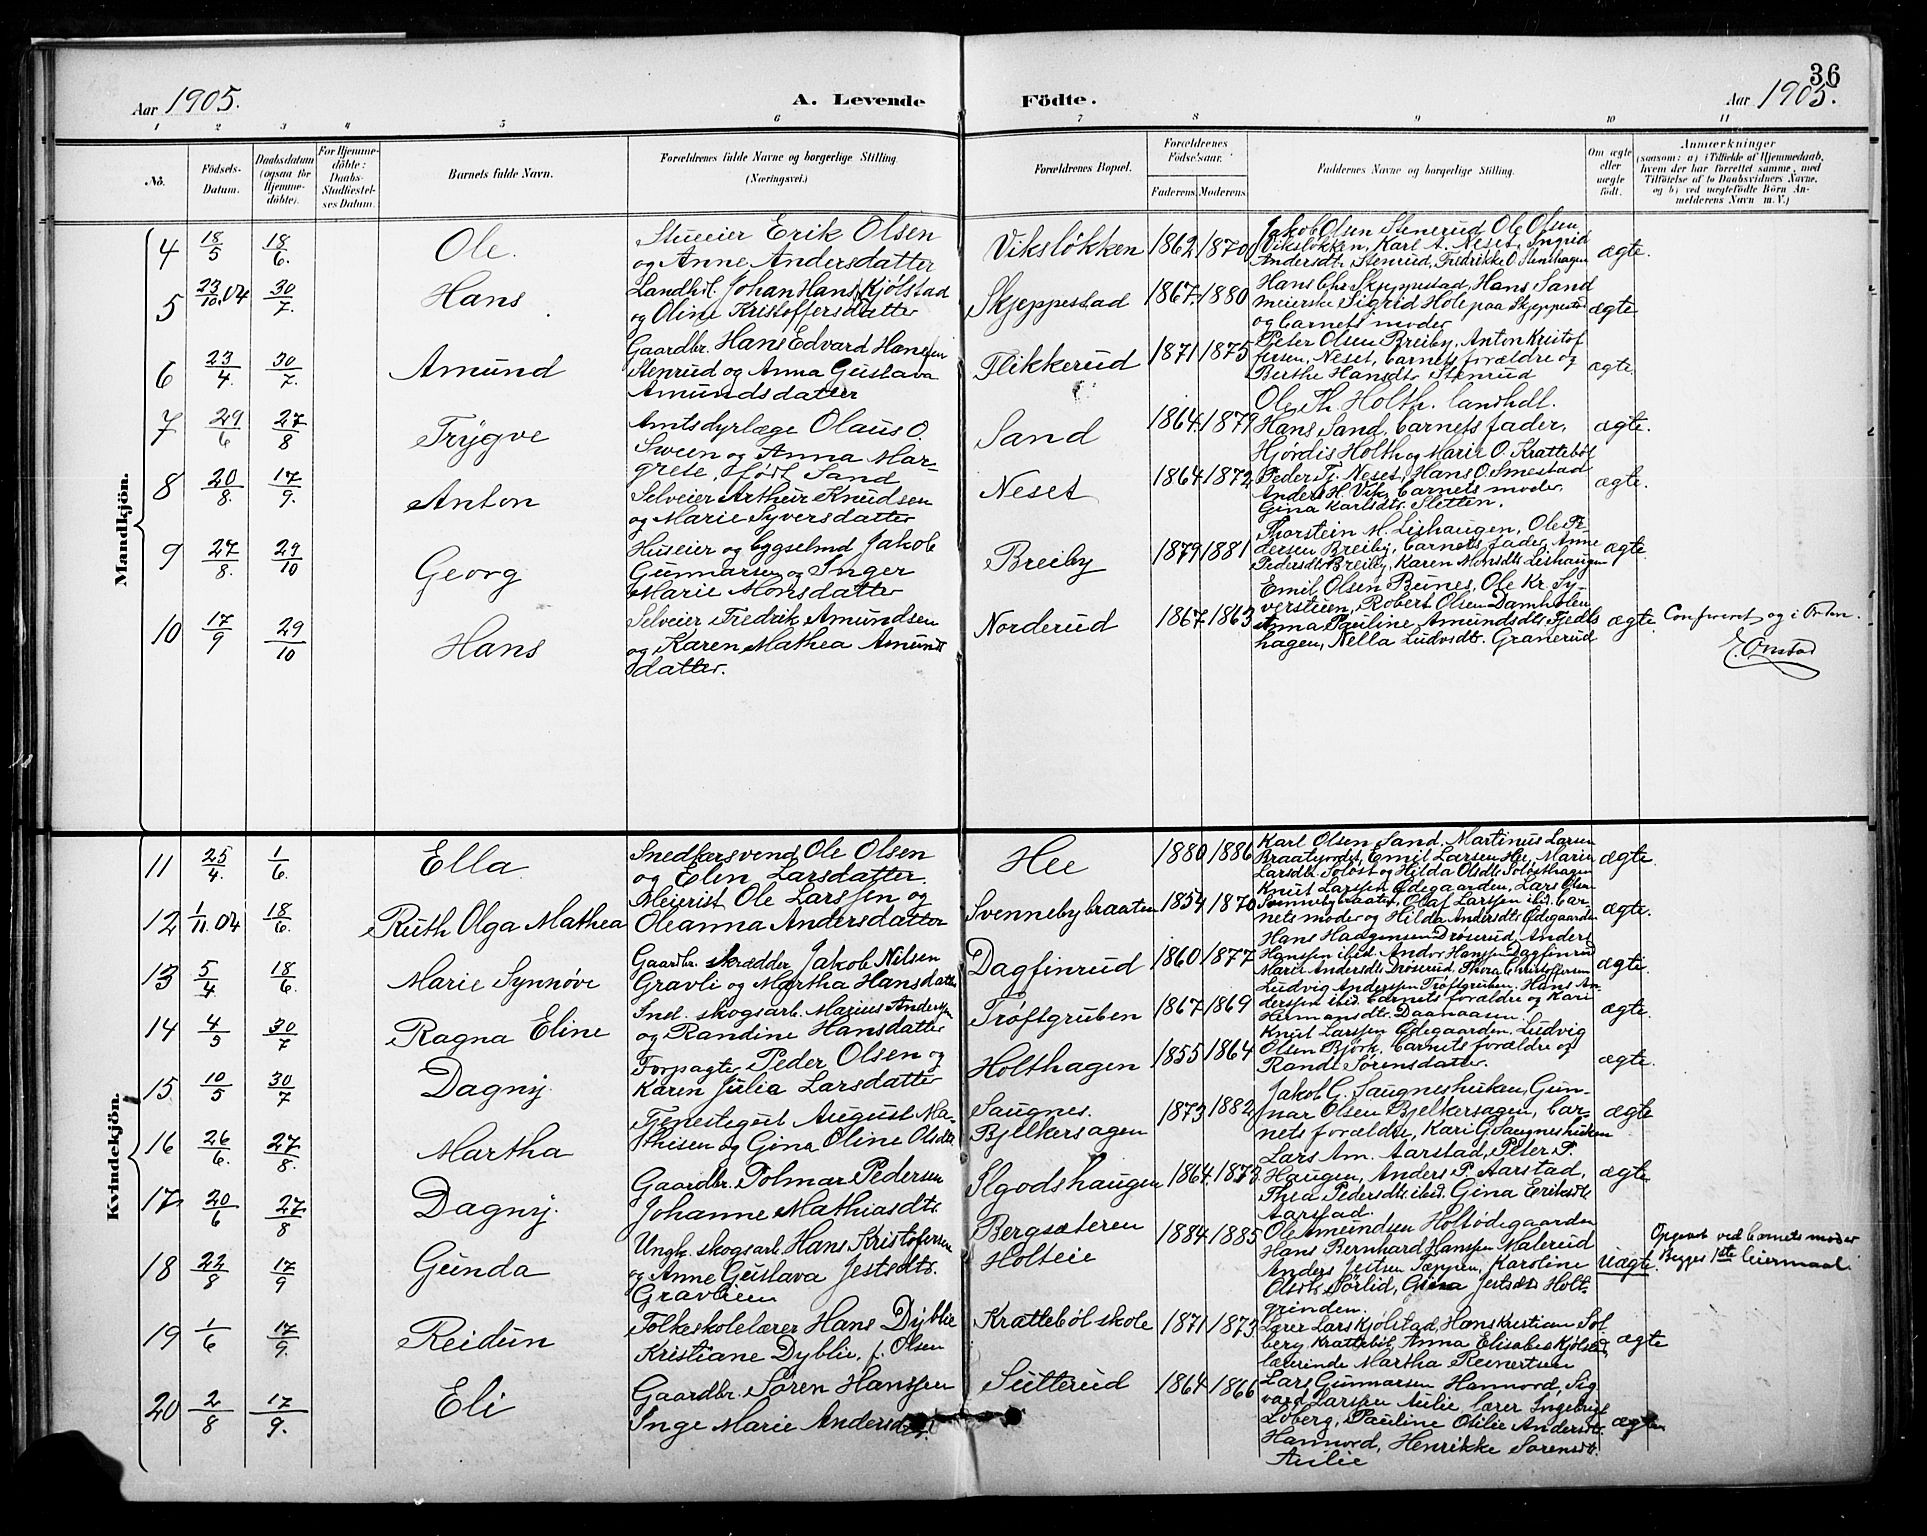 36
Aar 1905.
A. Levende
Födte.
Aar 1905.
1 2 3 4 5 6 7 8 9 10 11
No.
Födsels-
Datum.
Daabsdatum
(ogsaa for
Hjemme-
döbte).
For Hjemme-
döbte:
Daabs-
Stadfæstel-
ses Datum.
Barnets fulde Navn.
Forældrenes fulde Navne og borgerlige Stilling.
(Næringsvei.)
Forældrenes Bopæl.
Forældrenes
Födselsaar.
Faderens. Moderens.
Faddernes Navne og borgerlige Stilling.
Om ægte
eller
uægte
födt.
Anmærkninger
(saasom: a) i Tilfælde af Hjemmedaab,
hvem der har forrettet samme, med
Tilföielse af to Daabsvidners Navne,
og b) ved uægtefödte Börn An-
melderens Navn m. V.)
Mandkjön.
4 18/5 18/6. Ole.
Erik Olsen
og Anne Andersdatter
Viksløkken 1862 1870
Jakob Olsen Stenerud, Ole Olsen
Viksløkken, Karl A. Neset, Ingrid
Andersdtr. Stenrud, Fredrikke O. Stenshagen
ægte.
5 23/10.04 30/7. Hans
Landhdl. Johan Hans. Kjølstad
og Oline Kristoffersdatter
Skjeppestad 1867. 1880
Hans Chr. Skjeppestad, Hans Sand
meierske Sigrid Hole paa Skjeppestad
og barnets moder
ægte
6 23/4. 30/7. Amund
Gaardbr. Hans Edvard Hanssen
Stenrud og Anna Gustava
Amundsdatter
Flikkerud 1871 1875
Peter Olsen Breiby, Anton Kristof
fersen, Neset, barnets forældre og
Berthe Hansdtr. Stenrud
ægte.
7 29/6 27/8 Trygve
Amtsdyrlæge Olaus O.
Sween og Anna Mar-
grete, født Sand
Sand 1864. 1879
Ole Th. Holth. landhdl.
Hans Sand, barnets fader,
Hjørdis Holth og Marie O. Krattebøl
ægte.
8 20/8. 17/9. Anton
Selveier Arthur Knudsen
og Marie Syversdatter
Neset 1864 1872
Peder Tj. Neset, Hans O. Smestad
Anders H. Vik, barnets moder,
Gina Karlsdtr. Sletten.
ægte.
9 27/8. 29/10 Georg
Huseier og bygselmd Jakob
Gunnarsen og Inger
Marie Monsdatter
Breiby 1879 1881
Thorstein M. Lishaugen, Ole Pe-
dersen Breiby, barnets fader, Anne
Pedersdtr. Breiby, Karen Monsdtr. Lishaugen
ægte
10 17/9 29/10 Hans
Selveier Fredrik Amundsen
og Karen Mathea Amunds
datter.
Norderud 1867. 1863
Emil Olsen Bunes, Ole Kr. Sy-
verstuen, Robert Olsen Damholen
Anna Pauline Amundsdtr. Fjelds
hagen, Nella Ludvsdtr. Granerud
ægte. Confereret og i Orden.
E. Onstad
Kvindekjön.
11 25/4. 1/6. Ella
Snedkersvend Ole Olsen
og Elen Larsdatter
Hee 1880 1886
Karl Olsen Sand, Martinus Larsen
Emil Larsen Hee, Marie
Larsdtr. Soløst og Hilda Olsdtr. Soløsthagen
ægte.
12 1/11.04 18/6. Ruth Olga Mathea
Meierist Ole Larssen og
Oleanna Andersdatter
Svennebybraaten 1854 1870
Knut Larssen Ødegaarden, Lars Olsen
Svennebybraaten, Olaf Larssen ibid. bar-
nets moder og Hilda Andersdtr. Ødegaarden
ægte.
13 5/4 18/6. Marie Synnøve
Gaardbr. skrædder Jakob Nilsen
Gravli og Martha Hansdatter
Dagfinrud 1860 1877
Hans Haagensen Drøserud, Anders
Hanssen ibid. Andor Hanssen Dagfinrud
Marie Andersdtr. Drøserud, Thora Christoffersen
ægte.
14 4/5 30/7 Ragna Eline
Ind. skogsarb. Marius Anderssen
og Randine Hansdatter
Trøftgruben 1867 1869
Ludvig Anderssen Trøftgruben, Hans An-
derssen ibid. barnets forældre og Kari
Hermansdtr. Daanaasen.
ægte.
15 10/5 30/7 Dagny
Forpagter Peder Olsen og
Karen Julia Larsdatter
Holthagen 1855 1864
Knut Larssen Ødegaarden, Ludvig
Olsen Bjørk, barnets forældre og
Randi Sørensdatter.
ægte.
16 26/6. 27/8. Martha
Tjenestegut August Ma-
thisen og Gina Oline Olsdtr.
Saugnes.
Bjelkersagen 1873 1882
Jakob G. Saugneshuken, Gun-
nar Olsen Bjelkersagen, bar-
nets forældre, Kari G. Saugneshuken
ægte
17 20/6 27/8 Dagny.
Gaardbr. Polmar Pedersen
Johanne Mathiasdtr.
Slgodshaugen 1864. 1873.
Lars Am. Aarstad, Peter P.
Haugen, Anders P. Aarstad,
Thea Pedersdtr. ibid. Gina Eriksdtr
Aarstad.
ægte
18 22/8 17/9 Gunda
Ungk. skogsarb. Hans Kristofersen
og Anne Gustava Jestsdtr.
Gravlien
Bergsæteren
Holteie 1884 1885
Ole Amundsen Holtødegaarden
Hans Bernhard Hanssen Malerud
Anders Jestsen Sæppen, Karoline
Olsdtr. Sørlid, Gina Jestsdtr. Holt-
grinden.
uægte. Opgivet ved barnets moder
Begges 1ste leiermaal.
19 1/6 17/9. Reidun
Folkeskolelærer Hans Dyblie
Kristiane Dyblie, f. Olsen
Krattebøl skole 1871 1873
Lærer Lars Kjølstad, Hans Kristian Sol
berg Krattebøl, Anna Elisabet Kjølstad,
lærerinde Martha Reinertsen
ægte
20 2/8 17/9. Eli
Gaardbr. Søren Hanssen
Inge Marie Andersdtr.
Sutterud 1864 1866
Lars Gunnarsen Hannord, Sig
vard Larssen Aulie, lærer Ingebrigt
Løberg, Pauline Otilie Andersdtr.
Hannord, Henrikke Sørensdtr.
Aulie
ægte